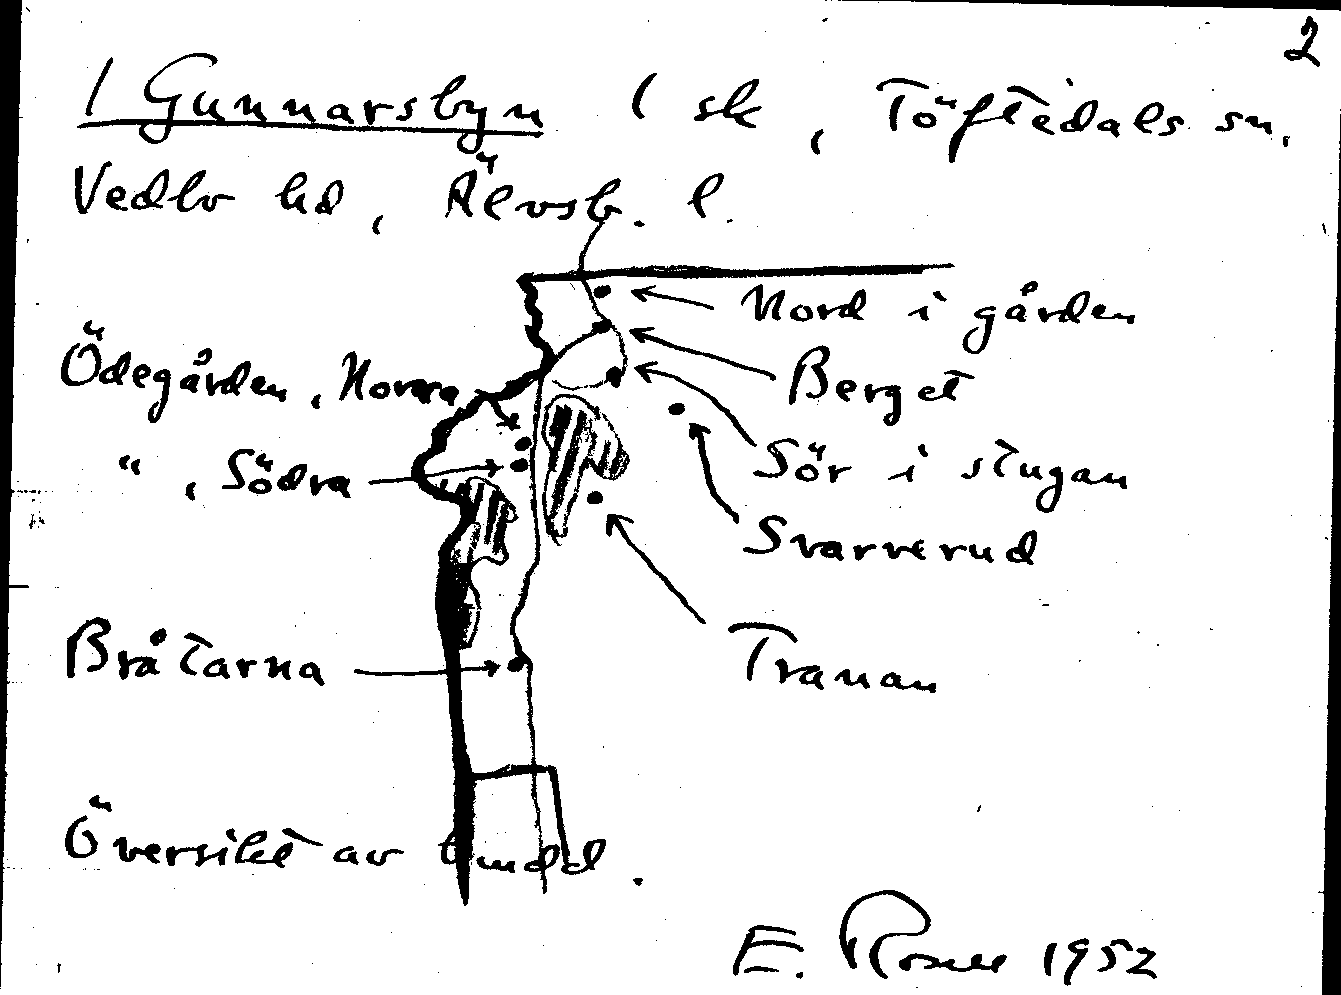 2
1 Gunnarsbyn 1 sk, Töftedals sn,
Vedbo hd, Älvsb. l.
Nord i gården
Ödegården, Norra
Berget
", Södra
Sör i stugan
Svarverud
Bråtarna
Tranan
Översikt av
E. 1952